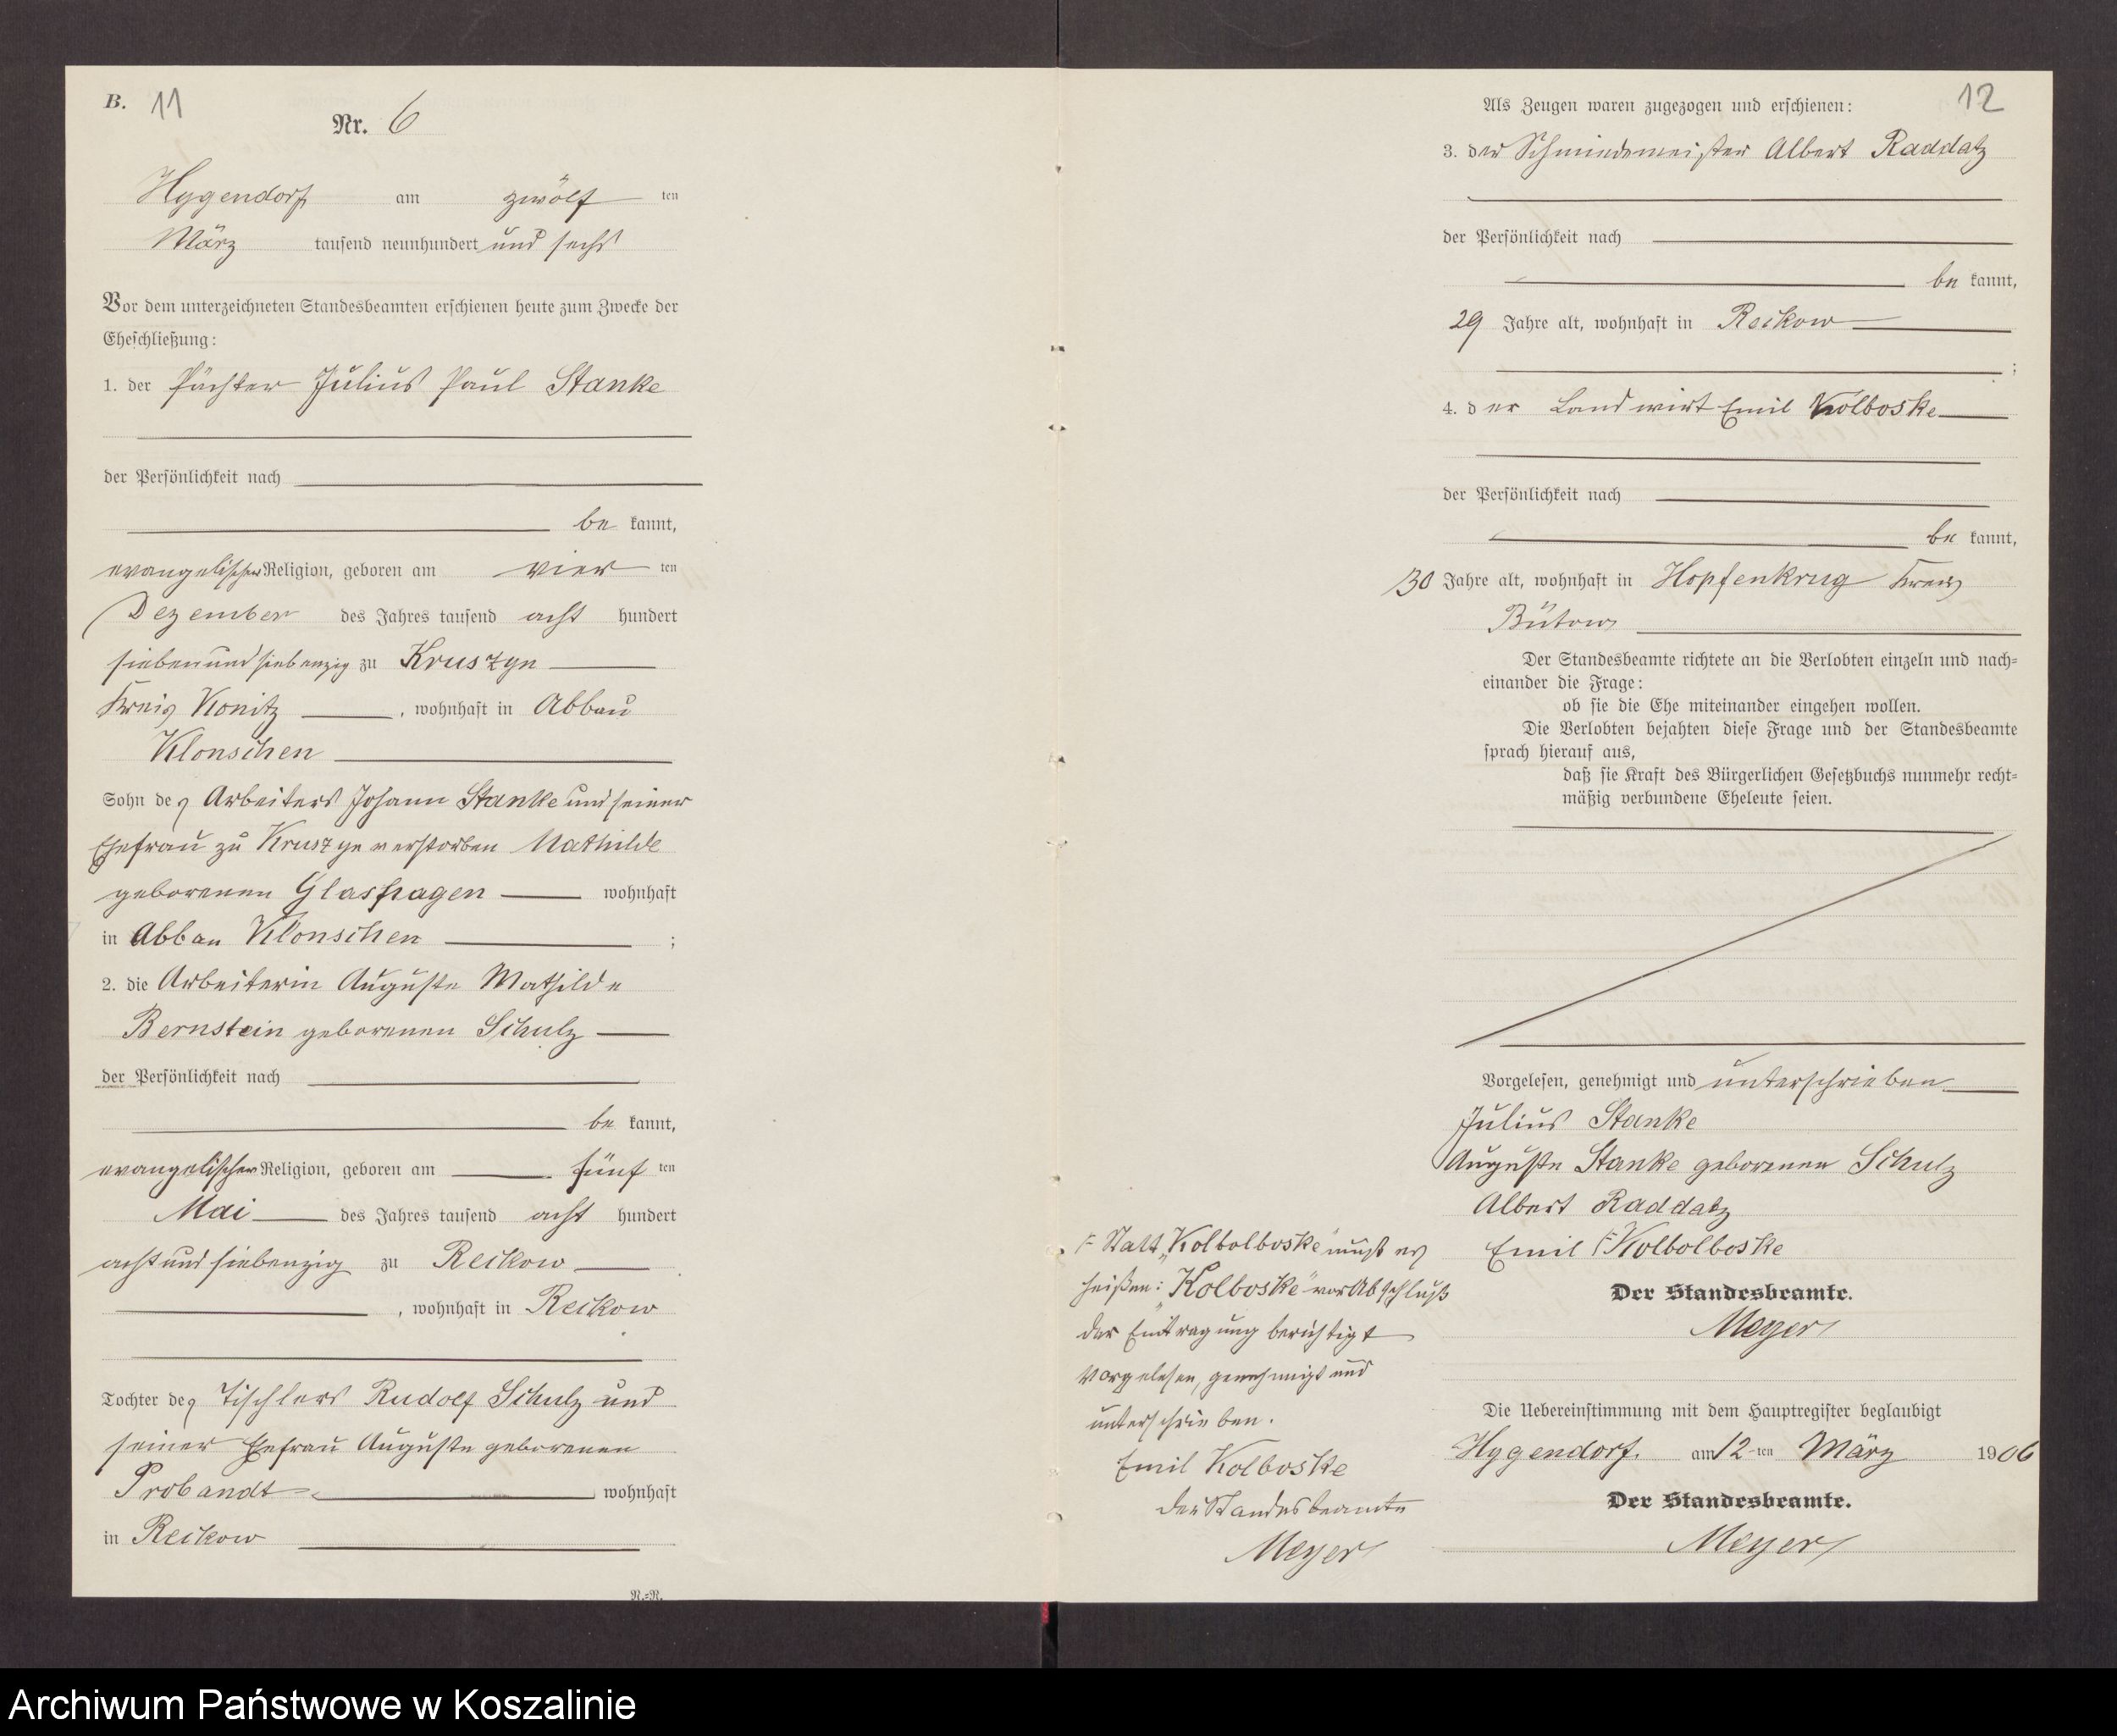 B. 11
Nr. 6
Hygendorf am zwölf ten
März tausend neunhundert und sechs
Vor dem unterzeichneten Standesbeamten erschienen heute zum Zwecke der
Eheschließung:
1. der Pächter Julius Paul Stanke
der Persönlichkeit nach
be kannt,
evangelischer Religion, geboren am vier ten
Dezember des Jahres tausend acht hundert
siebenundsiebenzig zu Kruszyn
Kreis Konitz , wohnhaft in Abbau
Klonschen
Sohn des Arbeiters Johann Stanke und seiner
Ehefrau zu Kruszyn verstorben Mathilde
geborenen Glashagen wohnhaft
in Abbau Klonschen ;
2. die Arbeiterin Auguste Mathilde
Bernstein geborenen Schulz
der Persönlichkeit nach
be kannt,
evangelischer Religion, geboren am fünf ten
Mai des Jahres tausend acht hundert
acht und siebenzig zu Reckow
, wohnhaft in Reckow
Tochter des Tischlers Rudolf Schulz und
seiner Ehefrau Auguste geborenen
Probandt wohnhaft
in Reckow
N.=N.
12
Als Zeugen waren zugezogen und erschienen:
3. der Schmiedemeister Albert Raddatz
der Persönlichkeit nach
be kannt,
29 Jahre alt, wohnhaft in Reckow
;
4. der Landwirt Emil Kolboske
der Persönlichkeit nach
be kannt,
30 Jahre alt, wohnhaft in Hopfenkrug Kreis
Bütow
Der Standesbeamte richtete an die Verlobten einzeln und nach=
einander die Frage:
ob sie die Ehe miteinander eingehen wollen.
Die Verlobten bejahten diese Frage und der Standesbeamte
sprach hierauf aus,
daß sie Kraft des Bürgerlichen Gesetzbuchs nunmehr recht=
mäßig verbundene Eheleute seien.
Vorgelesen, genehmigt und unterschrieben
Julius Stanke
Auguste Stanke geborenen Schulz
Albert Raddatz
Emil Kolbolboske
Der Standesbeamte.
Meyer
Die Uebereinstimmung mit dem Hauptregister beglaubigt
Hygendorf. am 12 ten März 1906
Der Standesbeamte.
Meyer
Statt „Kolbolboske" muß es
heißen: „Kolboske" vor Abschluß
der Eintragung berichtigt
Vorgelesen, genehmigt und
unterschrieben.
Emil Kolboske
Der Standesbeamte
Meyer
Archiwum Państwowe w Koszalinie